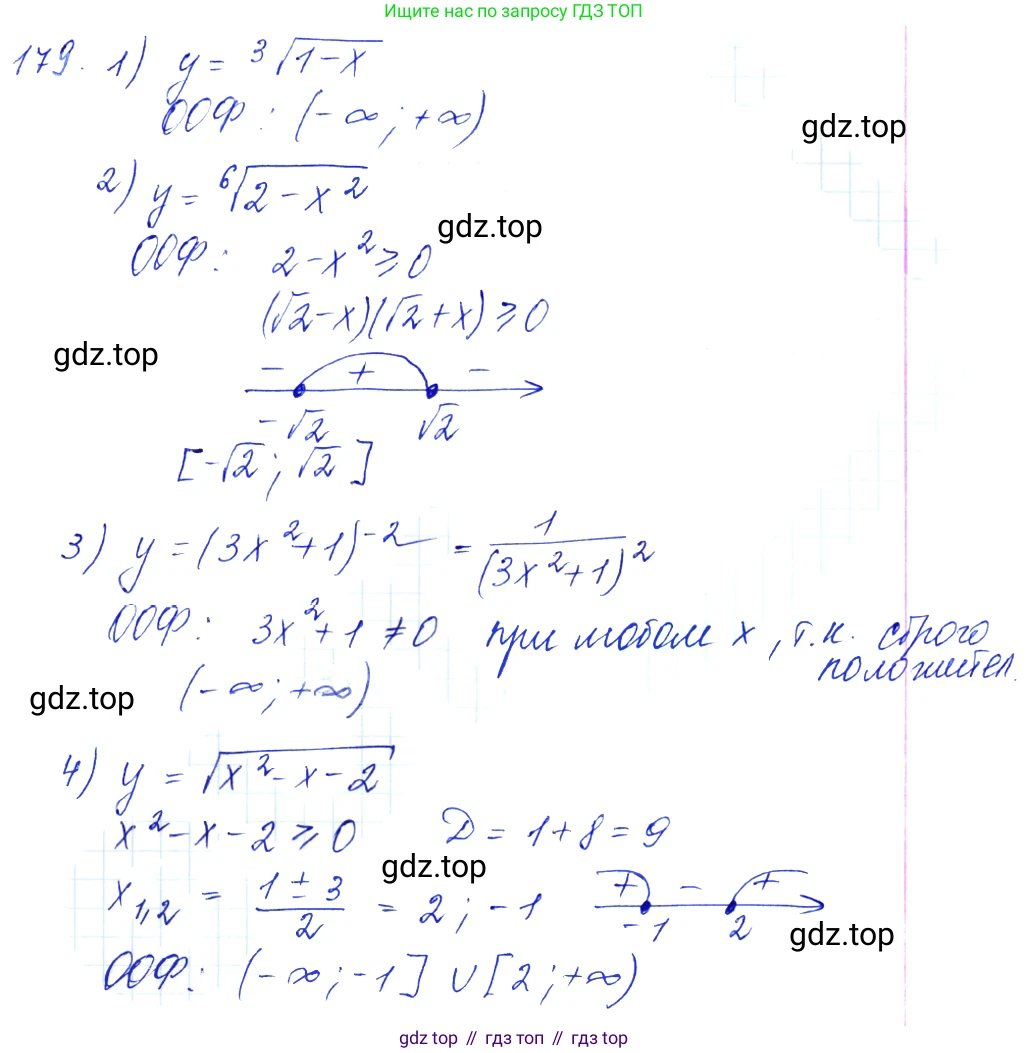 Ищите нас по запросу ГДЗ ТОП
179. 1) y = ³√(1-x)
ООФ: (-∞; +∞)
gdz.top
2) y = ⁶√(2-x²)
gdz.top
ООФ: 2-x² ≥ 0
(√2-x)(√2+x) ≥ 0
gdz.top
- + -
-√2 √2
[-√2; √2]
3) y = (3x²+1)⁻² = 1/(3x²+1)²
ООФ: 3x²+1 ≠ 0 при любом x, т.к. строго
положител.
gdz.top
(-∞; +∞)
4) y = √(x²-x-2)
x²-x-2 ≥ 0 D = 1+8 = 9
gdz.top
x₁,₂ = (1±3)/2 = 2; -1
+ - +
-1 2
gdz.top
ООФ: (-∞; -1] ∪ [2; +∞)
gdz top // гдз топ // gdz top